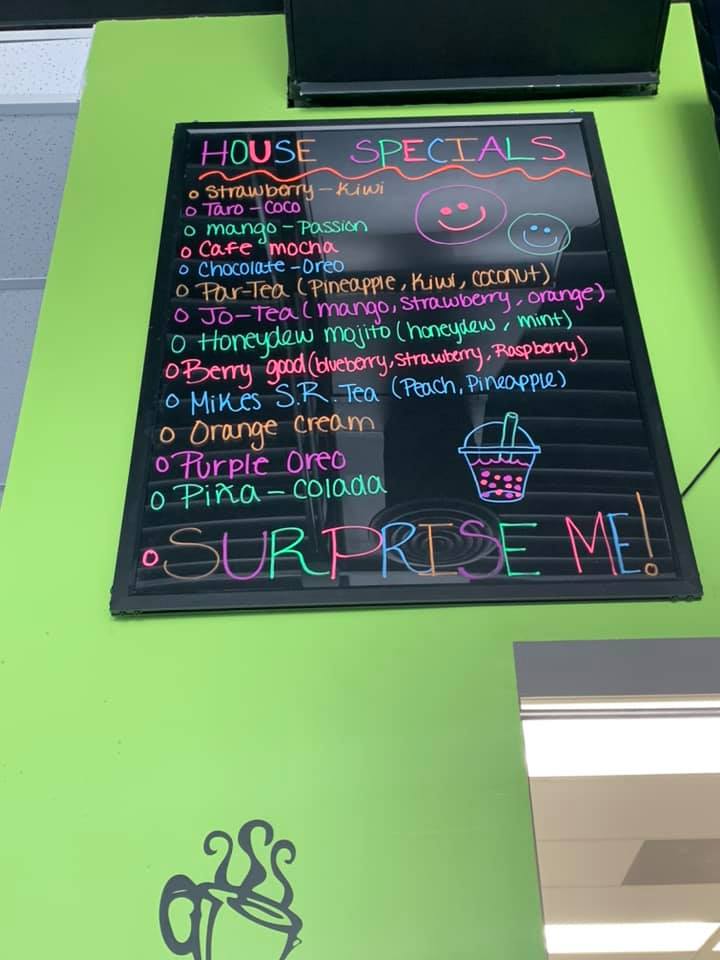 HOUSE SPECIALS
Strawberry - Kiwi
Taro - Coco
mango - Passion
Cafe mocha
Chocolate - Oreo
Par-Tea (Pineapple, Kiwi, coconut)
Jo-Tea (mango, Strawberry, orange)
Honeydew mojito (honeydew, mint)
Berry good (blueberry, Strawberry, Raspberry)
Mikes S.R. Tea (Peach, Pineapple)
Orange cream
Purple Oreo
Piña - colada
SURPRISE ME!